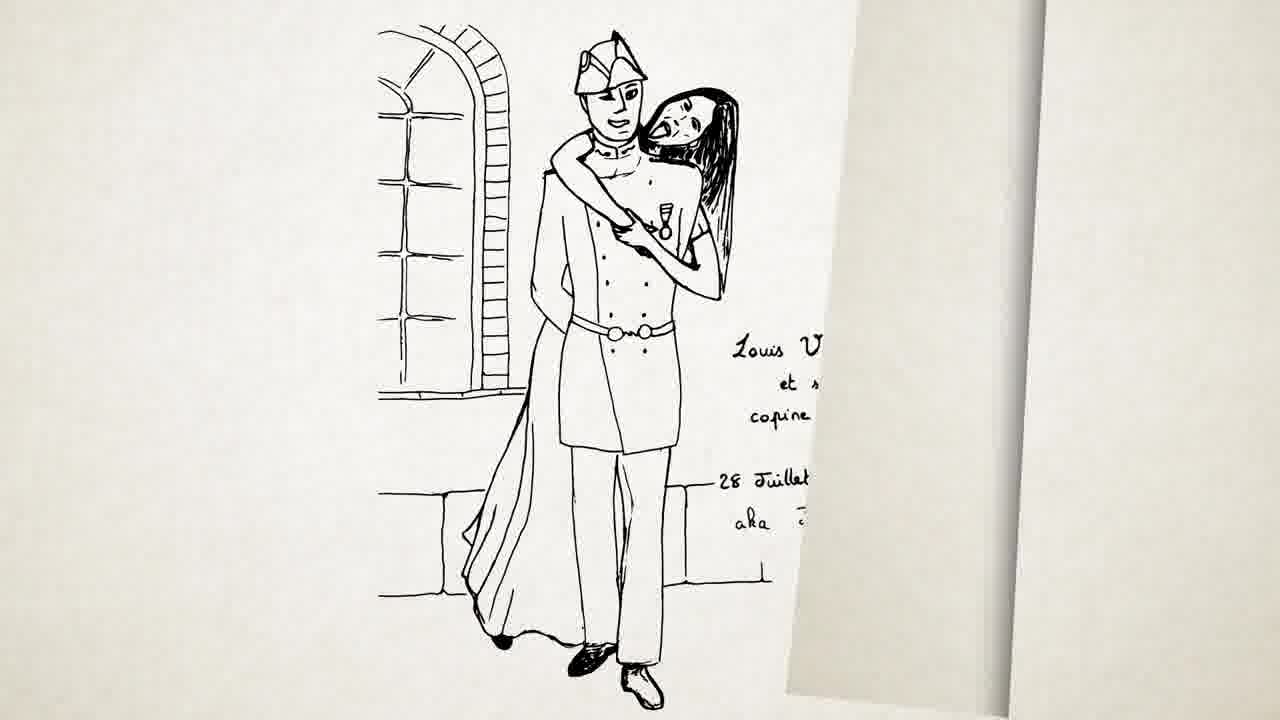 Louis V
et s
copine
28 Juillet
aka J